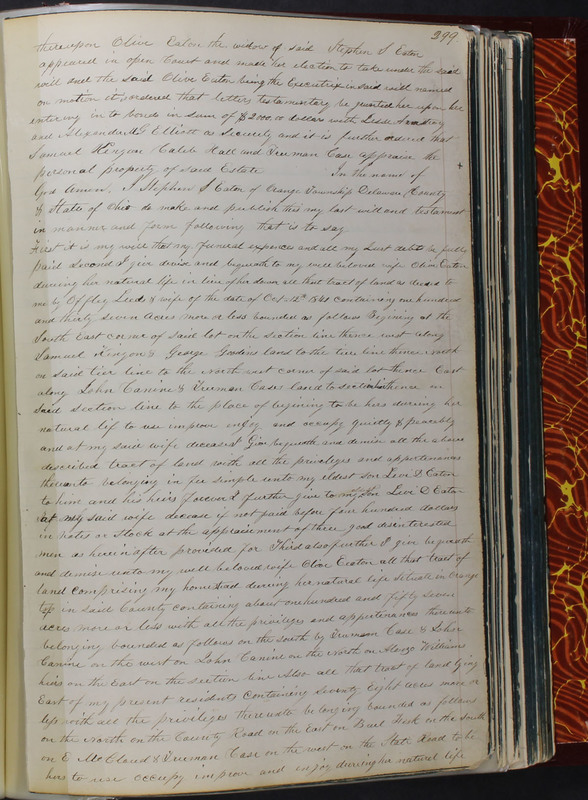 299
thereupon Olive Eaton the widow of said Stephen S Eaton
appeared in open Court and made her election to take under the said
will and the said Olive Eaton being the Executrix in said will named
on motion it ordered that letters testamentary be granted her upon her
entering in to bonds in sum of $2000.00 dollars with
and Alexander Mc Elliott as Security and it is further ordered that
Samuel Kenyon Caleb Hall and Truman Case appraise the
personal property of said Estate In the name of
God Amen, I Stephen S Eaton of Orange Township Delaware County
& State of Ohio do make and publish this my last will and testament
in manner and form following that is to say
First it is my will that my funeral expences and all my Just debts be fully
paid Second I give devise and bequeath to my well beloved wife Olive Eaton
during her natural life in lieu of her dower all that tract of land as deeded to
me by Offley Leed & wife of the date of Oct. 12th 1841 containing one hundred
and thirty seven acres more or less bounded as follows Begining at the
South East corner of said lot on the section line thence west along
Samuel Kenyon & George Goodens land to the tier line thence north
on said tier line to the north west corner of said lot thence East
along John Canine & Truman Case land to section line thence on
said section line to the place of begining to be hers during her
natural life to use improve enjoy and occupy quietly & peacebly
and at my said wife deceased I Give bequeath and demise all the above
described tract of land with all the privileges and appertenances
thereunto belonging in fee simple unto my eldest son Levi D Eaton
to him and his heirs forever I further give to my Son Levi D Eaton
at my said wife decease if not paid before four hundred dollars
in notes or stock at the appraisement of three good disinterested
men as herein after provided for Third also further I give bequeath
and demise unto my well beloved wife Olive Eaton all that tract of
land comprising my homestead during her natural life situate in Orange
tp in said County containing about one hundred and fifty seven
acres more or less with all the privileges and appertenances thereunto
belonging bounded as follows on the south by Truman Case & John
Canine on the west on John Canine on the north on Alonzo Williams
heirs on the East on the section line Also all that tract of land lying
East of my present residents containing Seventy Eight acres more or
less with all the privileges thereunto belonging bounded as follows
on the North on the County Road on the East on Duel Fisk on the South
on E McCleud & Truman Case on the west on the State Road to be
hers to use occupy improve and enjoy during her natural life